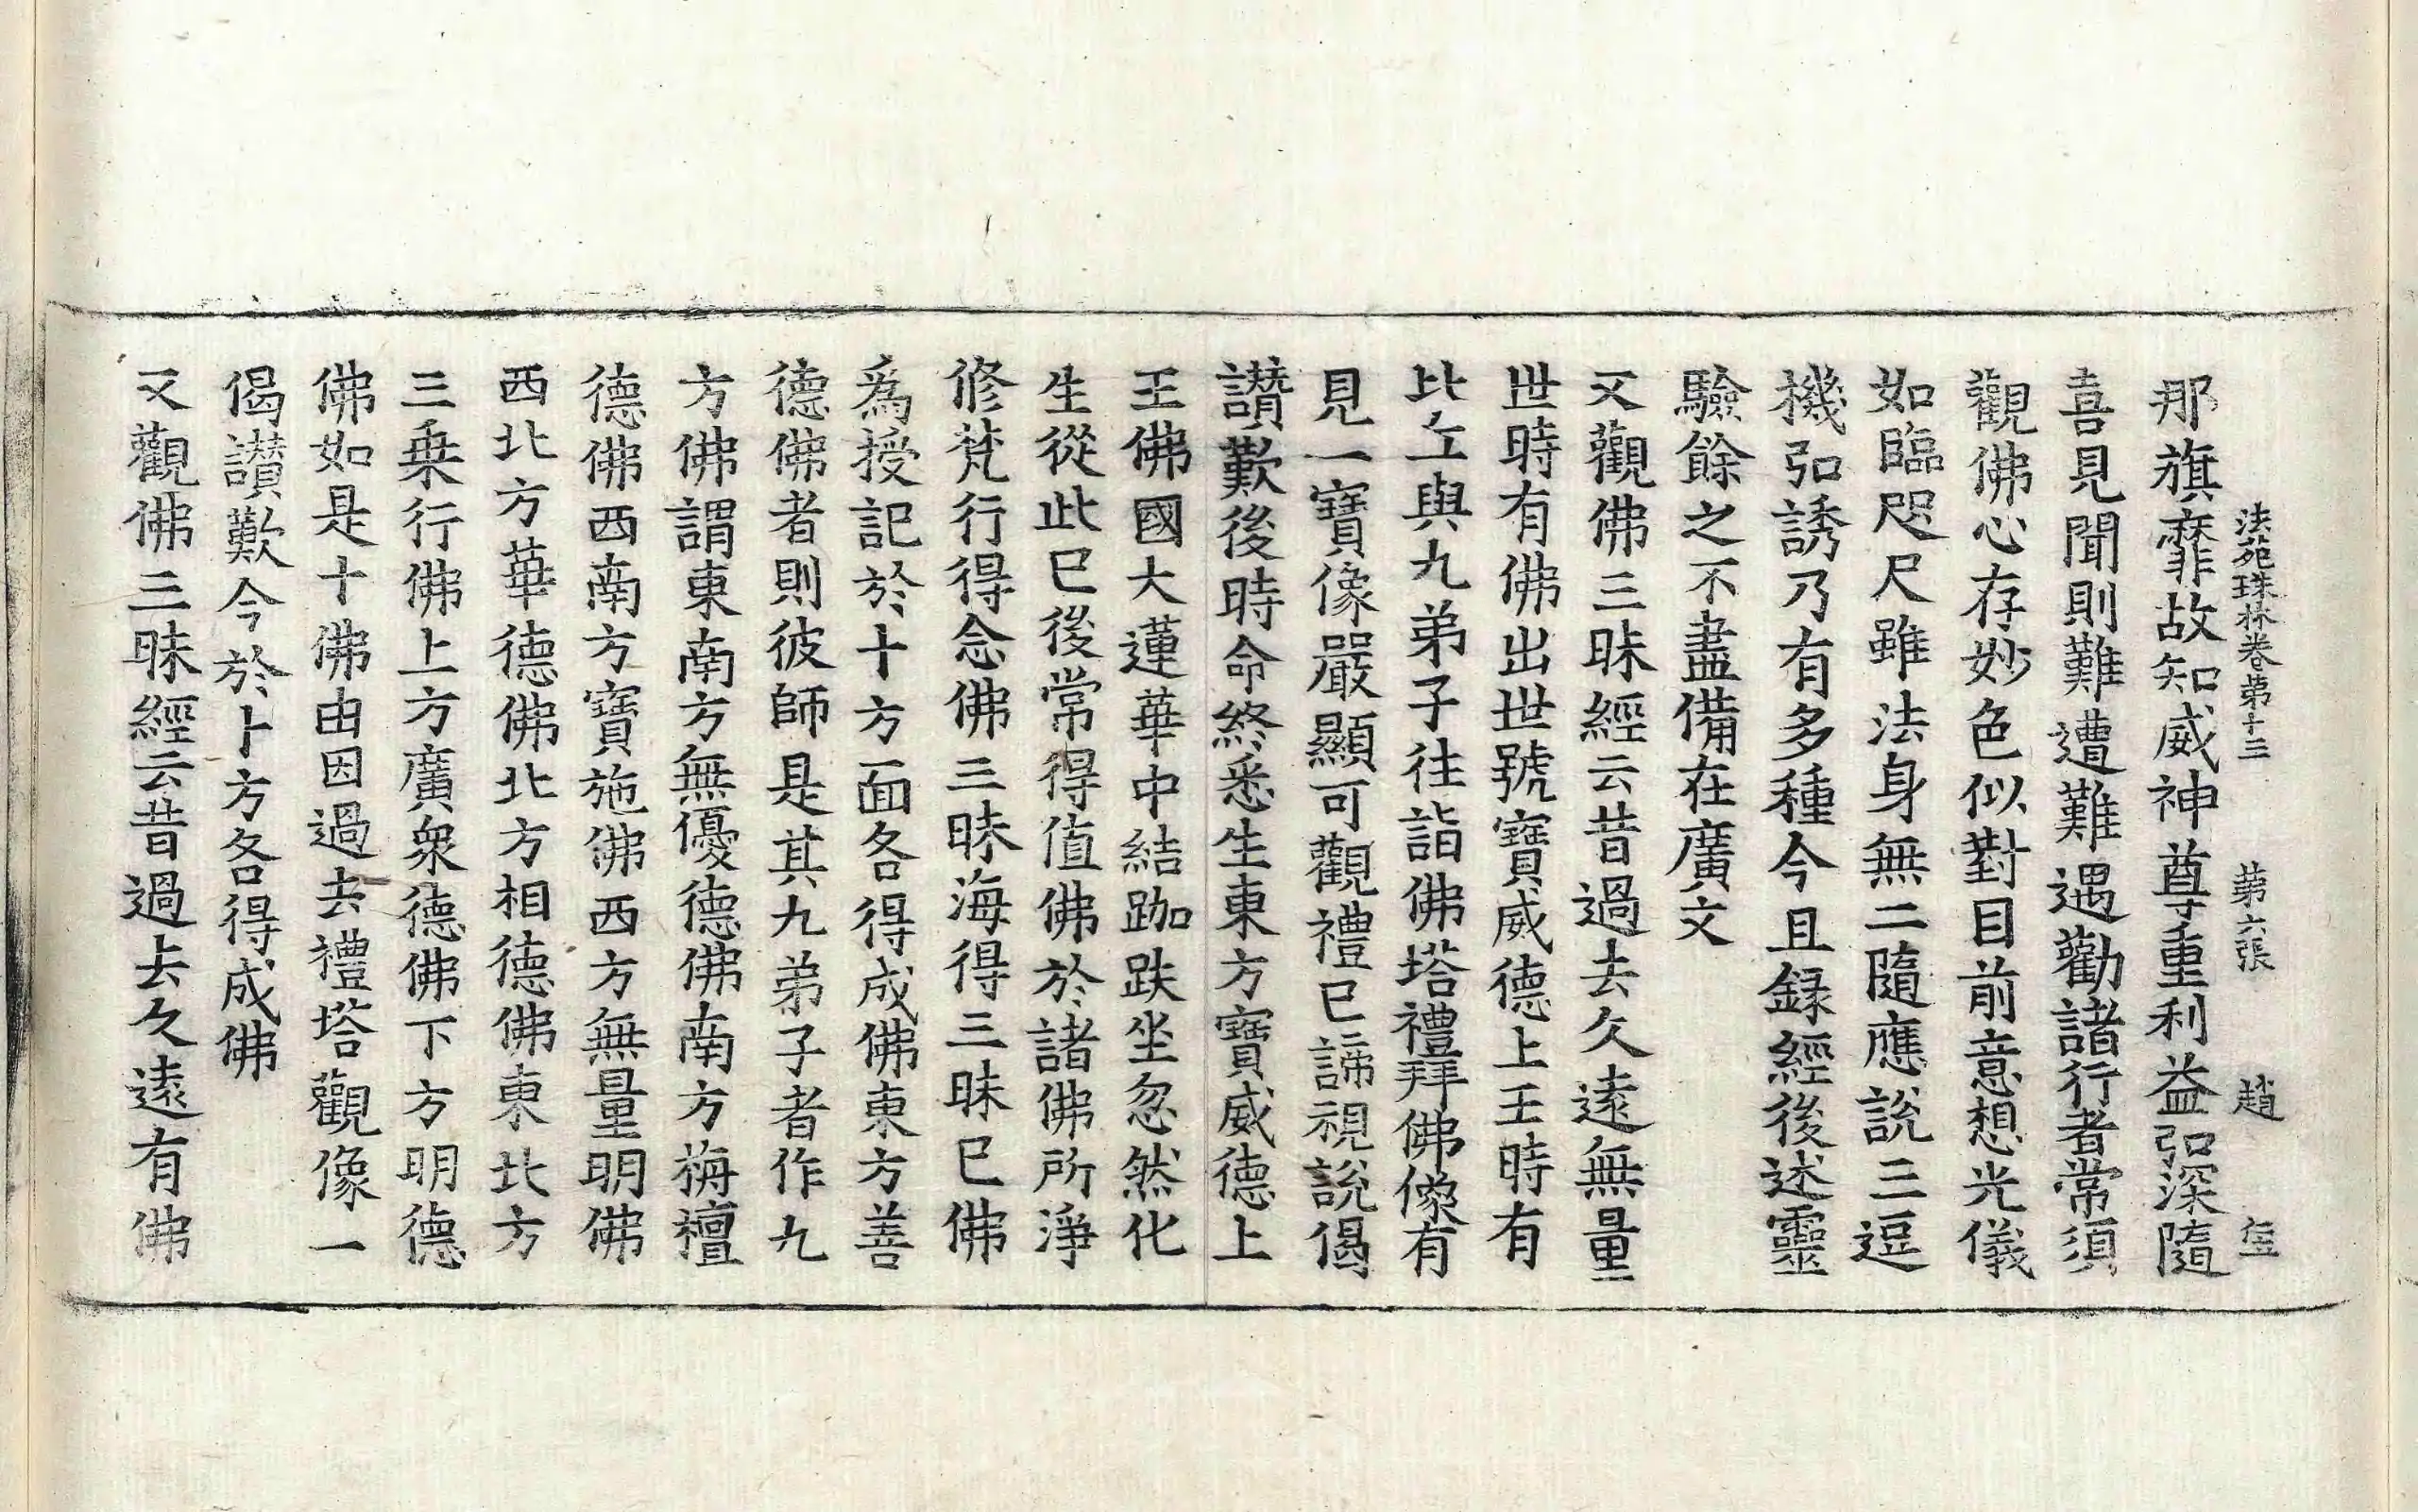 法苑珠林卷第十三 第六張 趙 㐰
那旗靡故知威神尊重利益弘深隨
喜見聞則難遭難遇勸諸行者常須
觀佛心存妙色似對目前意想光儀
如臨咫尺雖法身無二隨應說三逗
機弘誘乃有多種今且録經後述靈
驗餘之不盡備在廣文
又觀佛三昧經云昔過去久遠無量
世時有佛出世號寶威德上王時有
比丘與九弟子往詣佛塔禮拜佛像有
見一寶像嚴顯可觀禮已諦視說偈
讃歎後時命終悉生東方寶威德上
王佛國大蓮華中結跏趺坐忽然化
生從此已後常得值佛於諸佛所淨
修梵行得念佛三昧海得三昧已佛
爲授記於十方面各得成佛東方善
德佛者則彼師是其九弟子者作九
方佛謂東南方無優德佛南方栴檀
德佛西南方寶施佛西方無量明佛
西北方華德佛北方相德佛東北方
三乗行佛上方廣衆德佛下方明德
佛如是十佛由因過去禮塔觀像一
偈讃歎今於十方各得成佛
又觀佛三昧經云昔過去久遠有佛